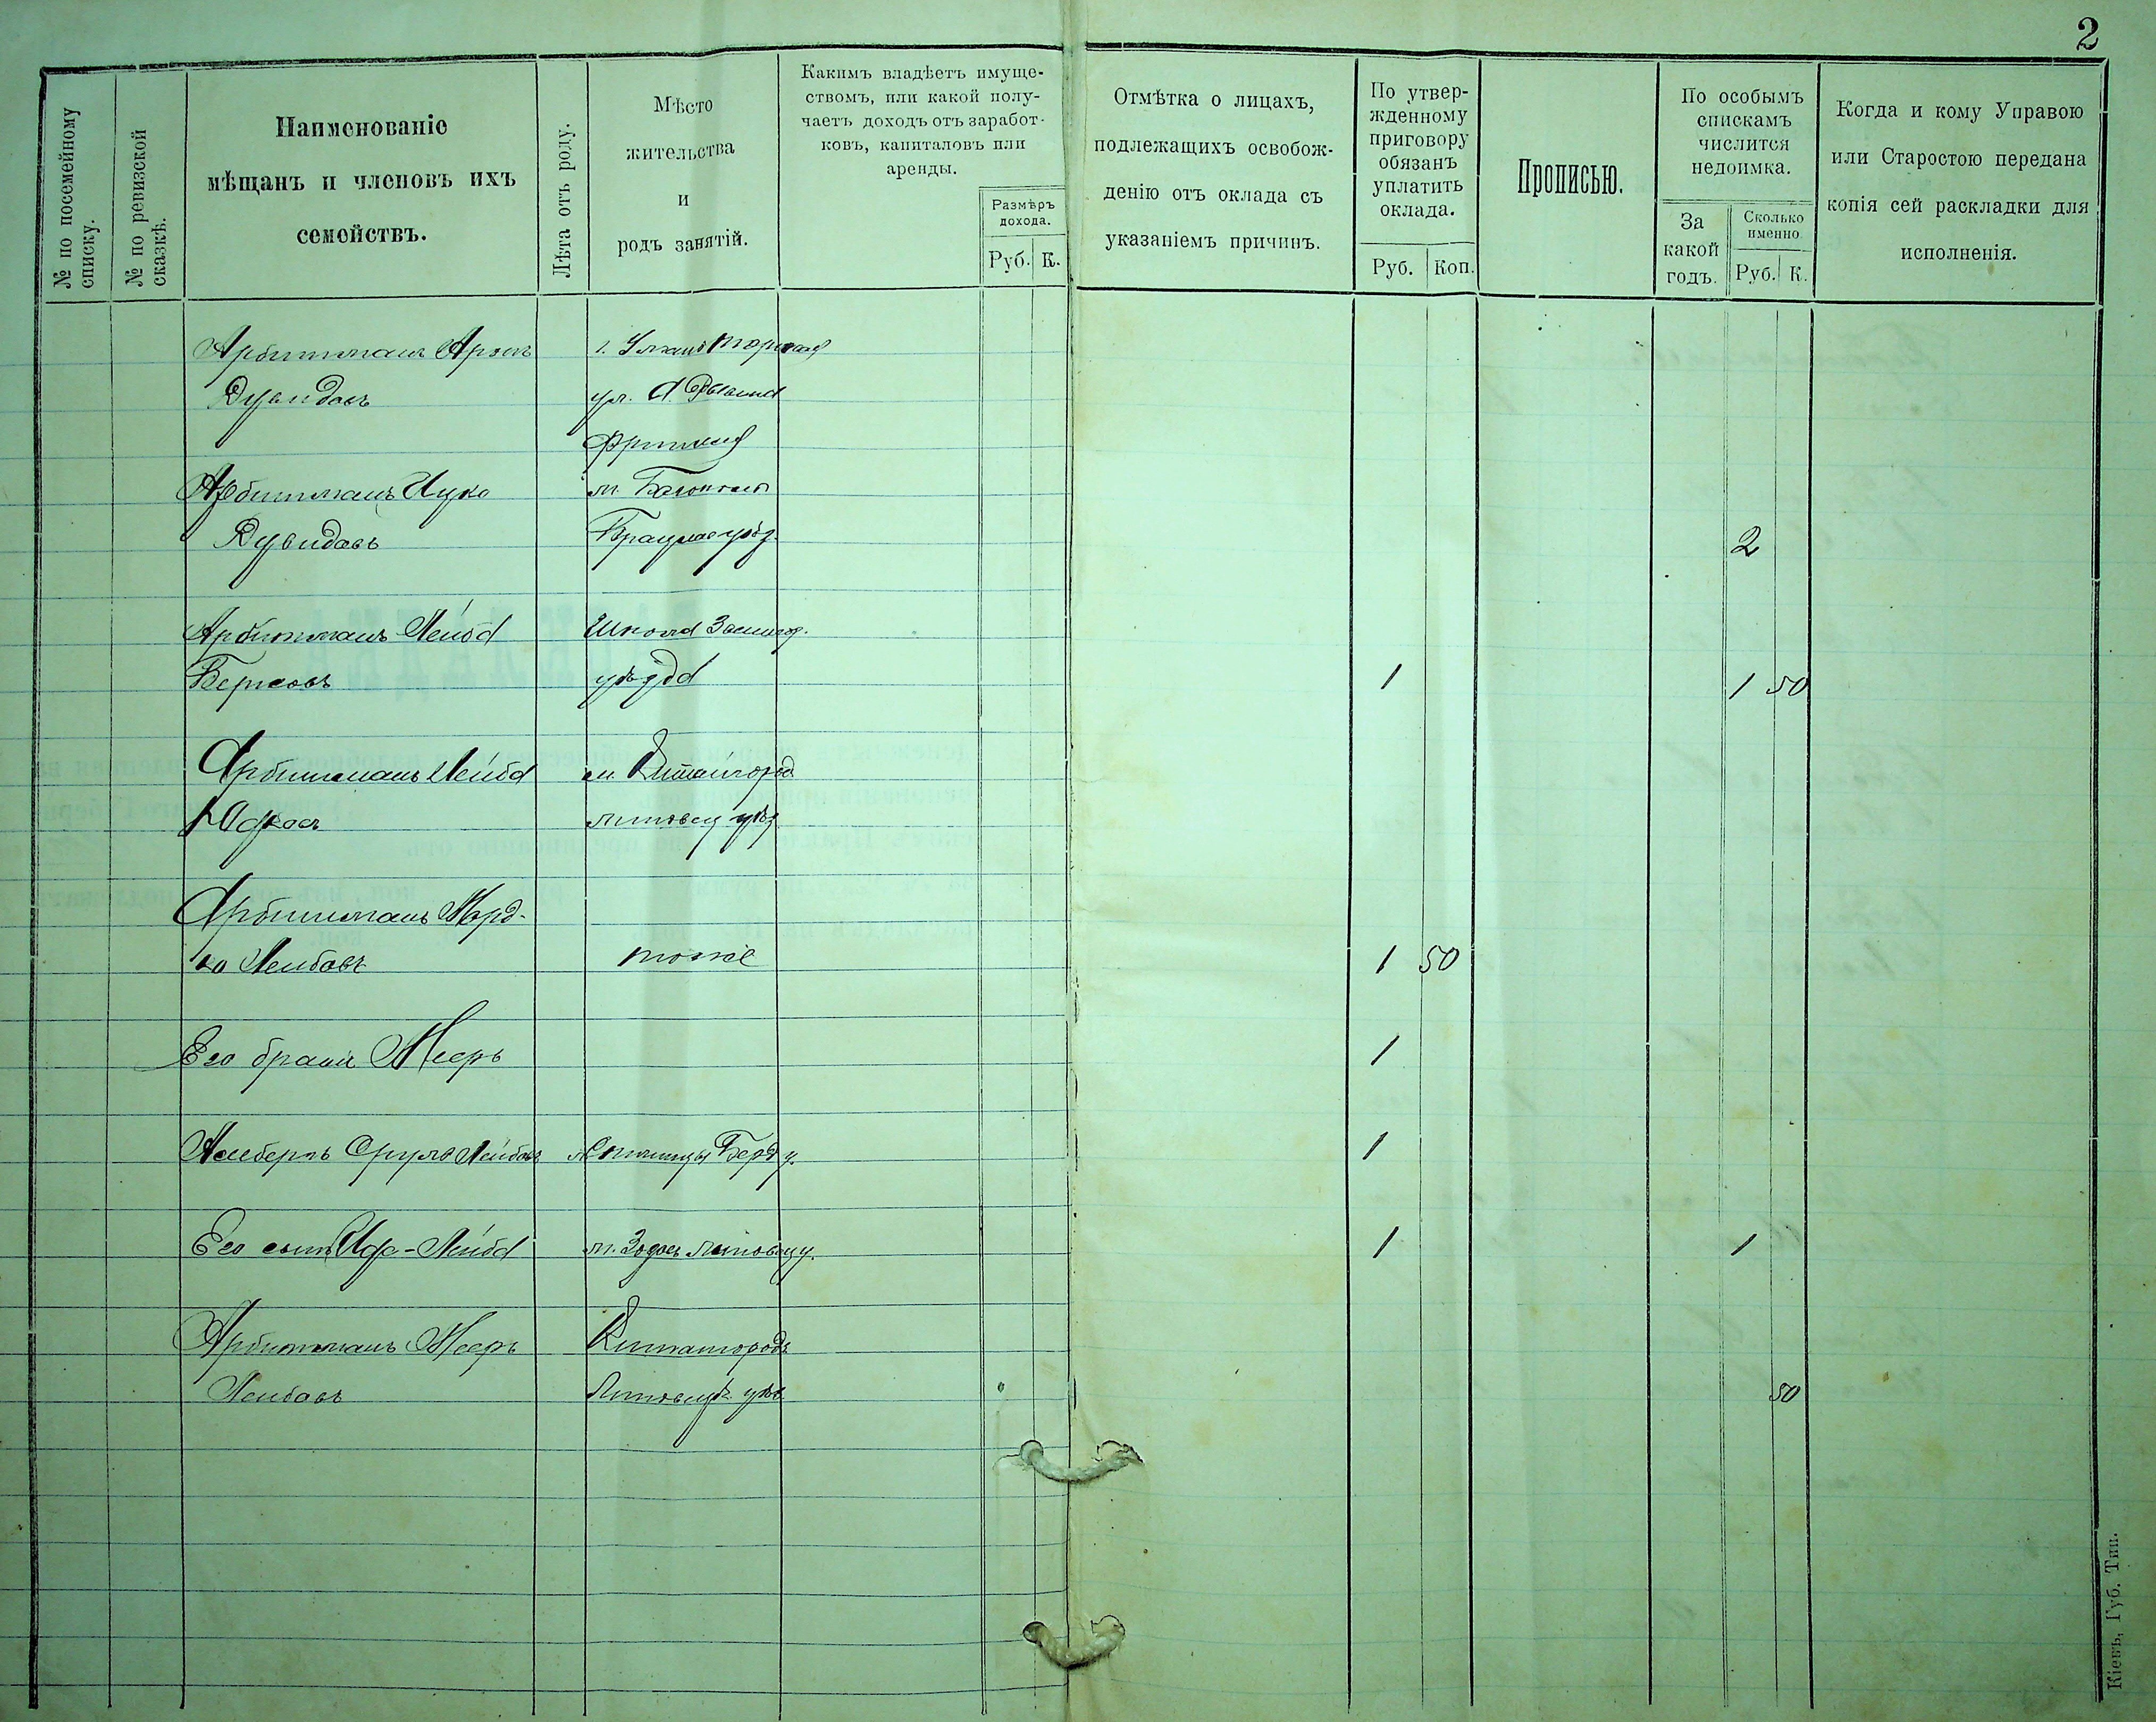 2
№ по посемейному списку.
№ по ревизской сказкѣ.
Наименованіе
мѣщанъ и членовъ ихъ
семействъ.
Лѣта отъ роду.
Мѣсто
жительства
и
родъ занятій.
Какимъ владѣетъ имуще-
ствомъ, или какой полу-
чаетъ доходъ отъ заработ-
ковъ, капиталовъ или
аренды.
Размѣръ
дохода.
Руб. К.
Отмѣтка о лицахъ,
подлежащихъ освобож-
денію отъ оклада съ
указаніемъ причинъ.
По утвер-
жденному
приговору
обязанъ
уплатить
оклада.
Руб. Коп.
Прописью.
По особымъ
спискамъ
числится
недоимка.
За
какой
годъ.
Сколько
именно
Руб. К.
Когда и кому Управою
или Старостою передана
копія сей раскладки для
исполненія.
Арбитманъ Аронъ г. Умань
Дувидовъ ул. д.
Арбитманъ Ицко м.
Дувидовъ 2
Арбитманъ Лейба Школа
Берковъ уѣзда 1 1 50
Арбитманъ Лейба м. Китайгород
Липовец уѣз
Арбитманъ Морд-
ко Лейбовъ тоже 1 50
Его братъ Мееръ 1
Сруль Лейбовъ Берд у. 1
Его сынъ Лейба м. Липовец у. 1 1
Арбитманъ Мееръ Китайгородъ
Лейбовъ Липовец уѣз 50
Кіевъ, Губ. Тип.